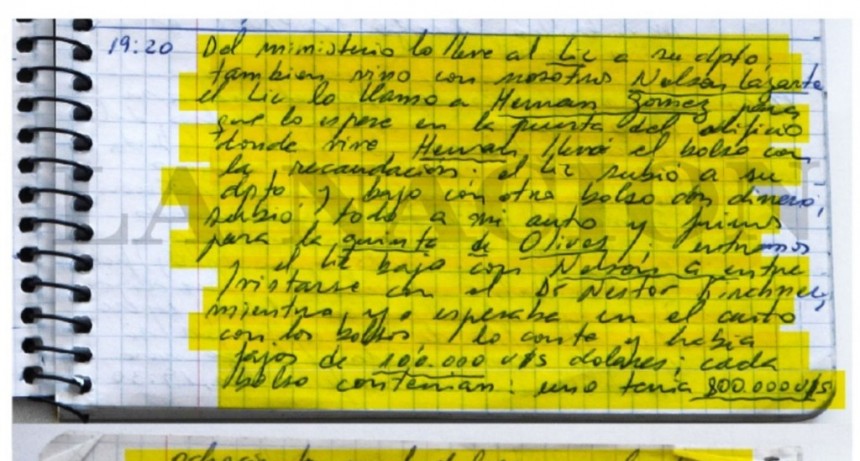 19:20 Del ministerio lo lleve al Lic a su dpto,
tambien vino con nosotros Nelson Lazarte
el Lic lo llamo a Hernan Gomez para
que lo espere en la puerta del edificio
donde vive Hernan llevó el bolso con
la recaudacion; el Lic subió a su
dpto, y bajo con otro bolso con dinero,
subio todo a mi auto y fuimos
para la quinta de Olivos; entramos
y el Lic bajo con Nelson a entre
vistarse con el Dr Nestor Kirchner,
mientras yo esperaba en el auto
con los bolsos lo conte y habia
fajos de 100.000 U$S dolares; cada
bolso contenian: uno tenia 800.000 U$S
LA NACION